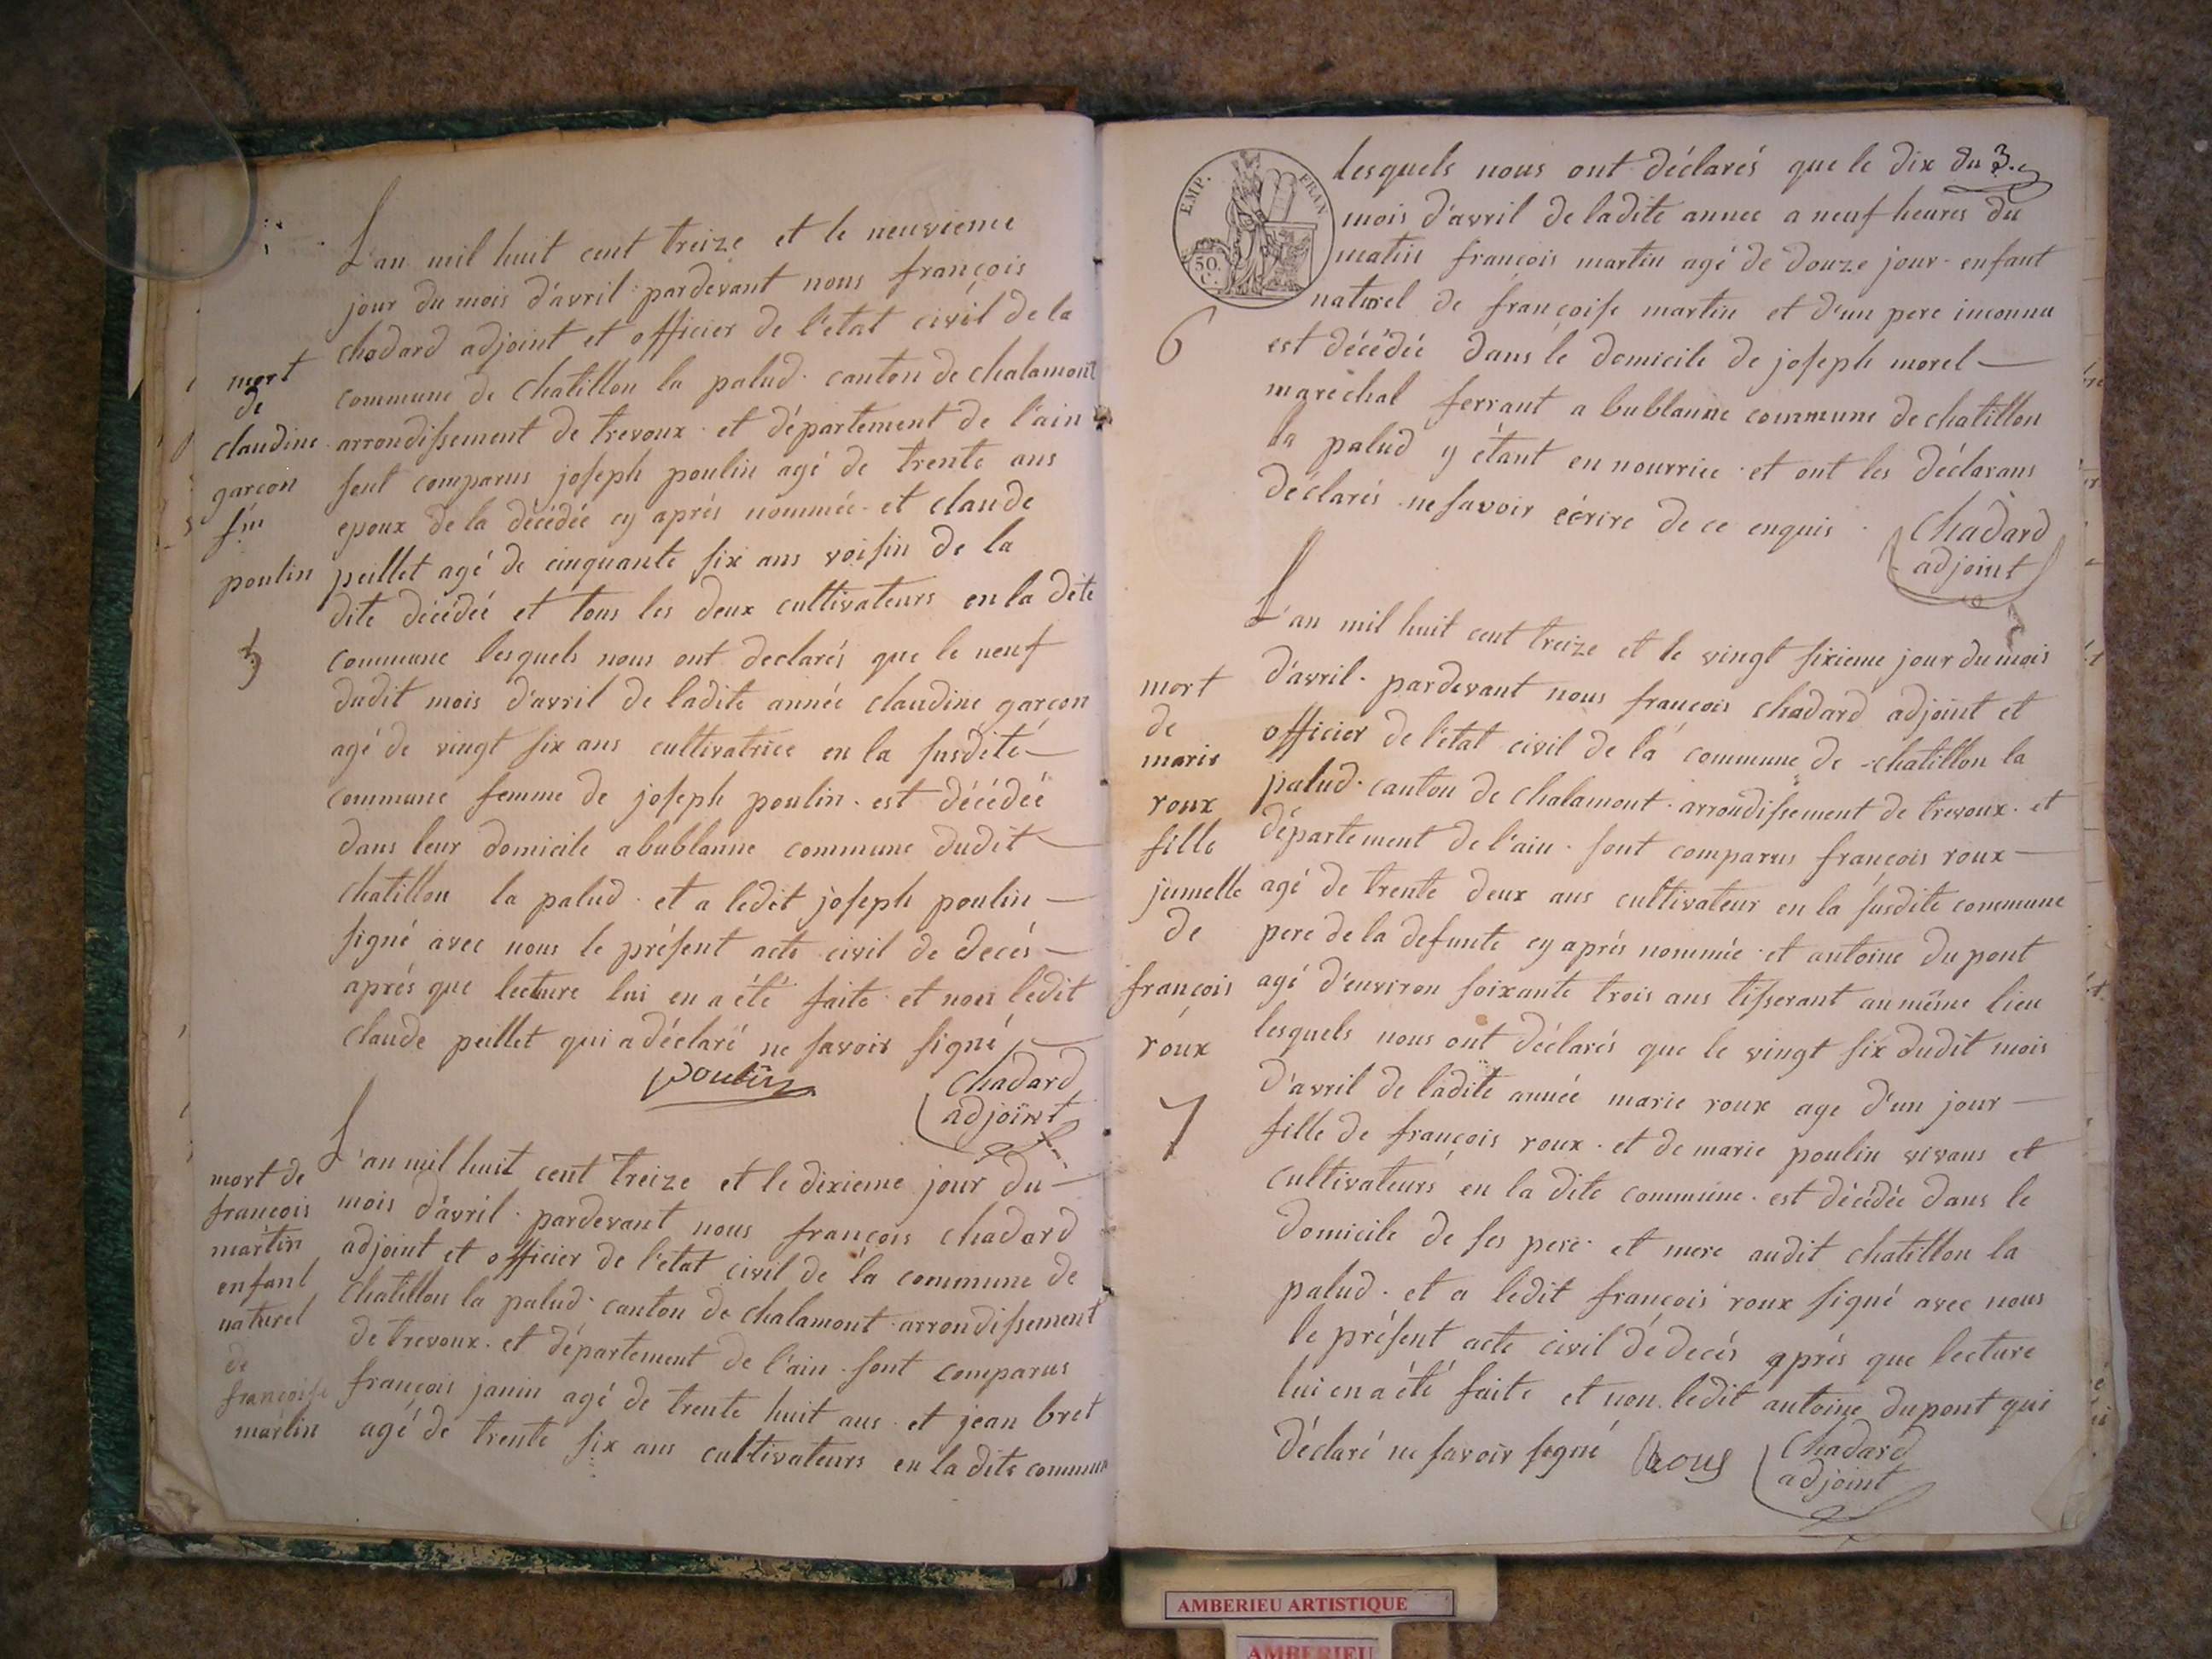 L'an mil huit cent treize et le neuvieme
jour du mois d'avril pardevant nous françois
chadard adjoint et officier de l'etat civil de la
commune de chatillon la palud canton de chalamont
arrondissement de trevoux et département de l'ain
sont comparus joseph poulin agé de trente ans
epoux de la décédée cy aprés nommée et claude
peillet agé de cinquante six ans voisin de la
dite décédée et tous les deux cultivateurs en la dite
commune lesquels nous ont declarés que le neuf
dudit mois d'avril de ladite année claudine garçon
agé de vingt six ans cultivatrice en la susdite
commune femme de joseph poulin est décédée
dans leur domicile a bublanne commune dudit
chatillon la palud et a ledit joseph poulin
signé avec nous le présent acte civil de decés
aprés que lecture lui en a été faite et non ledit
claude peillet qui a déclaré ne savoir signé
poulin chadard
adjoint
mort
de
claudine
garçon
fm
poulin
5
L'an mil huit cent treize et le dixieme jour du
mois d'avril pardevant nous françois chadard
adjoint et officier de l'état civil de la commune de
chatillon la palud canton de chalamont arrondissement
de trevoux et département de l'ain sont comparus
françois janin agé de trente huit ans et jean bret
agé de trente six ans cultivateurs en la dite commune
mort de
françois
martin
enfant
naturel
de
françoise
martin
EMP. FRAN
50.
C.
lesquels nous ont déclarés que le dix du 3.e
mois d'avril de ladite année a neuf heures du
matin françois martin agé de douze jour enfant
naturel de françoise martin et d'un pere inconnu
est décédée dans le domicile de joseph morel
maréchal ferrant a bublanne commune de chatillon
la palud y étant en nourrice et ont les déclarans
déclarés ne savoir écrire de ce enquis chadard
adjoint
6
L'an mil huit cent treize et le vingt sixieme jour du mois
d'avril pardevant nous françois chadard adjoint et
officier de l'état civil de la commune de chatillon la
palud canton de chalamont arrondissement de trevoux et
département de l'ain sont comparus françois roux
agé de trente deux ans cultivateur en la susdite commune
pere de la defunte cy aprés nommée et antoine du pont
agé d'environ soixante trois ans tisserant au même lieu
lesquels nous ont déclarés que le vingt six dudit mois
d'avril de ladite année marie roux age d'un jour
fille de françois roux et de marie poulin vivans et
cultivateurs en la dite commune est décédée dans le
domicile de ses pere et mere audit chatillon la
palud et a ledit françois roux signé avec nous
le présent acte civil de decés aprés que lecture
lui en a été faite et non ledit antoine dupont qui
déclaré ne savoir signé Rous chadard
adjoint
mort
de
marie
roux
fille
jumelle
de
françois
roux
7
AMBERIEU ARTISTIQUE
AMBERIEU